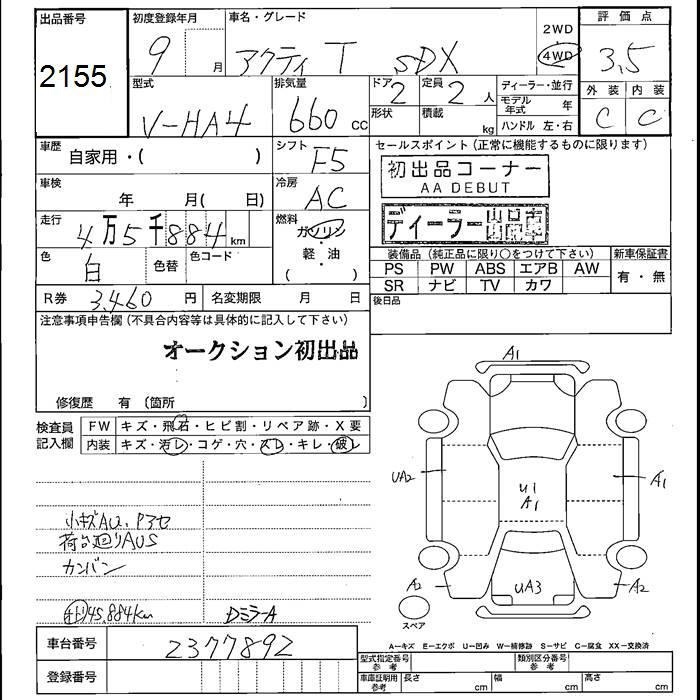 出品番号
2155
初度登録年月
9 月
車名・グレード
アクティ T SDX
2WD
4WD
評価点
3.5
外装 内装
C C
型式
V-HA4
排気量
660 cc
ドア 2
形状
定員 2 人
積載 kg
ディーラー・並行
モデル年式 年
ハンドル 左・右
車歴
自家用・( )
シフト
F5
セールスポイント(正常に機能するものに限ります)
初出品コーナー
AA DEBUT
ディーラー
車検
年 月( 日)
冷房
AC
走行
4万5千884km
燃料
ガソリン
軽・油
( )
色
白
色替
色コード
装備品(純正品に限り○をつけて下さい)
新車保証書
PS PW ABS エアB AW
SR ナビ TV カワ
有・無
後日品
R券 3,460 円
名変期限 月 日
注意事項申告欄(不具合内容等は具体的に記入して下さい)
オークション初出品
修復歴 有 (箇所 )
検査員記入欄
FW キズ・飛石・ヒビ割・リペア跡・X要
内装 キズ・汚レ・コゲ・穴・スレ・キレ・破レ
小キズAU、Pアセ
荷台廻りAUS
カンバン
45,884km
DミラーA
A1
UA2
A1
U1
A1
A2
UA3
A2
スペア
A―キズ E―エクボ U―凹み W―補修跡 S―サビ C―腐食 XX―交換済
車台番号
2377892
登録番号
型式指定番号 参考
類別区分番号 参考
車庫証明用 参考
長さ cm
幅 cm
高さ cm